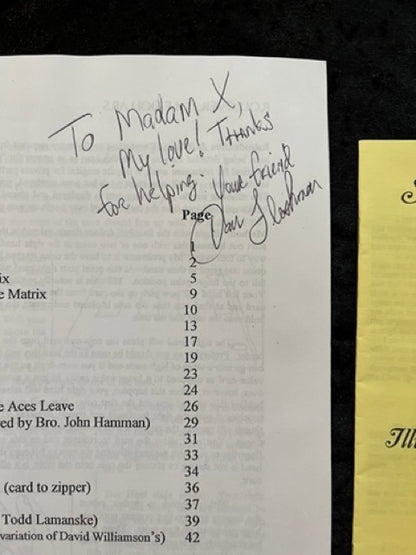 To Madam X,
My love! Thanks
for helping. Your friend
Dan
Page
1
2
ix 5
e Matrix 9
10
13
17
19
23
24
e Aces Leave 26
ed by Bro. John Hamman) 29
31
33
34
(card to zipper) 36
37
Todd Lamanske) 39
variation of David Williamson's) 42
Ill